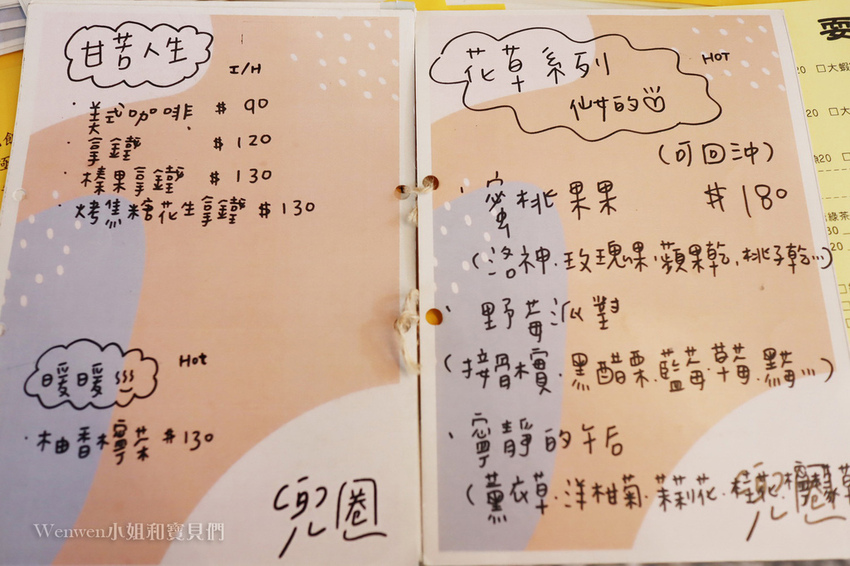 甘苦人生
I/H
·美式咖啡 $90
·拿鐵 $120
·榛果拿鐵 $130
·烤焦糖花生拿鐵 $130
暖暖
Hot
·柚香檸茶 $130
兜圈
Wenwen小姐和寶貝們
花草系列
HOT
仙女的
(可回沖)
·蜜桃果果 $180
(洛神.玫瑰果.蘋果乾.桃子乾...)
·野莓派對
(接骨木實.黑醋栗.藍莓.草莓.黑莓...)
·寧靜的午后
(薰衣草.洋柑菊.茉莉花.桂花.檸檬草
兜圈
耍
20 □大蝦
20
20 □大